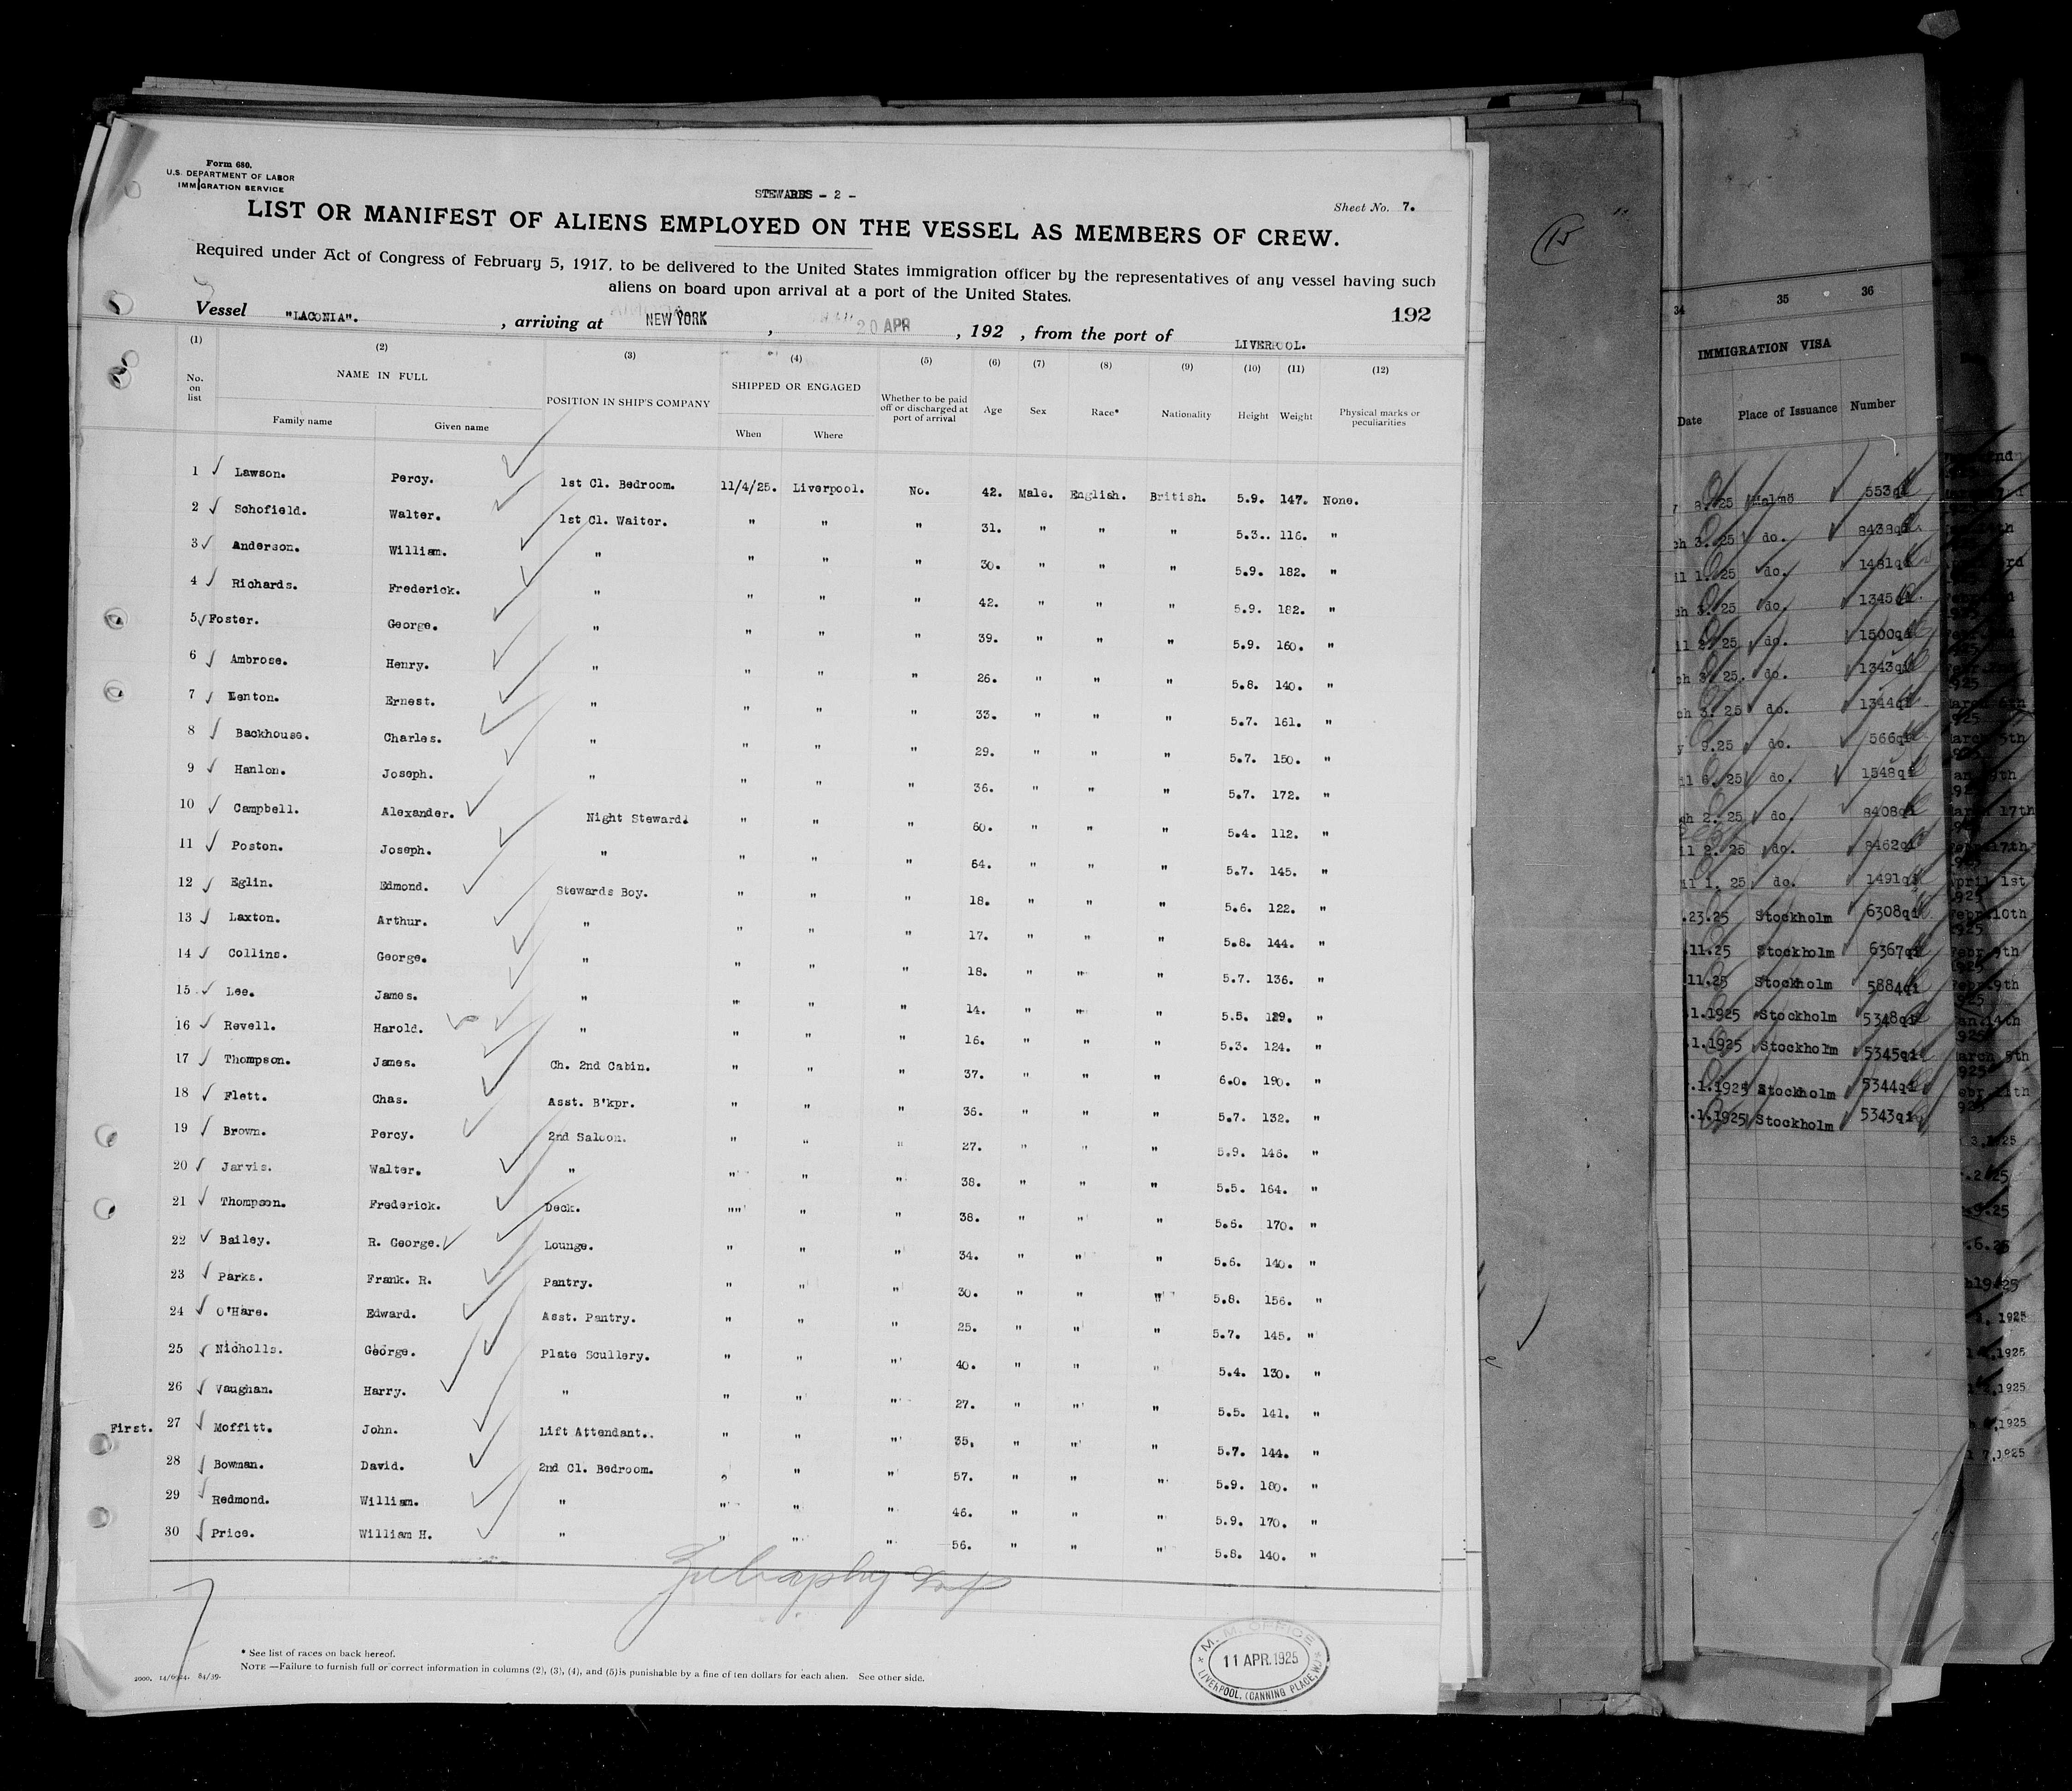 Form 680.
U.S. DEPARTMENT OF LABOR
IMMIGRATION SERVICE
STEWARDS - 2 -
Sheet No. 7.
LIST OR MANIFEST OF ALIENS EMPLOYED ON THE VESSEL AS MEMBERS OF CREW.
Required under Act of Congress of February 5, 1917, to be delivered to the United States immigration officer by the representatives of any vessel having such
aliens on board upon arrival at a port of the United States.
192
Vessel "LACONIA". , arriving at NEW YORK , 20 APR , 192 , from the port of LIVERPOOL.
(1) (2) (3) (4) (5) (6) (7) (8) (9) (10) (11) (12)
No. on list NAME IN FULL Family name Given name POSITION IN SHIP'S COMPANY SHIPPED OR ENGAGED When Where Whether to be paid off or discharged at port of arrival Age Sex Race* Nationality Height Weight Physical marks or peculiarities
1 Lawson. Percy. 1st Cl. Bedroom. 11/4/25. Liverpool. No. 42. Male. English. British. 5.9. 147. None.
2 Schofield. Walter. 1st Cl. Waiter. " " " 31. " " " 5.3.. 116. "
3 Anderson. William. " " " " 30. " " " 5.9. 182. "
4 Richards. Frederick. " " " " 42. " " " 5.9. 182. "
5 Foster. George. " " " " 39. " " " 5.9. 160. "
6 Ambrose. Henry. " " " " 26. " " " 5.8. 140. "
7 Lenton. Ernest. " " " " 33. " " " 5.7. 161. "
8 Backhouse. Charles. " " " " 29. " " " 5.7. 150. "
9 Hanlon. Joseph. " " " " 36. " " " 5.7. 172. "
10 Campbell. Alexander. Night Steward. " " " 60. " " " 5.4. 112. "
11 Poston. Joseph. " " " " 64. " " " 5.7. 145. "
12 Eglin. Edmond. Stewards Boy. " " " 18. " " " 5.6. 122. "
13 Laxton. Arthur. " " " " 17. " " " 5.8. 144. "
14 Collins. George. " " " " 18. " " " 5.7. 136. "
15 Lee. James. " " " " 14. " " " 5.5. "
16 Revell. Harold. " " " " 16. " " " 5.3. 124. "
17 Thompson. James. Ch. 2nd Cabin. " " " 37. " " " 6.0. 190. "
18 Flett. Chas. Asst. B'kpr. " " " 36. " " " 5.7. 132. "
19 Brown. Percy. 2nd Saloon. " " " 27. " " " 5.9. 146. "
20 Jarvis. Walter. " " " " 38. " " " 5.5. 164. "
21 Thompson. Frederick. Deck. "" " " 38. " " " 5.6. 170. "
22 Bailey. R. George. Lounge. " " " 34. " " " 5.6. 140. "
23 Parks. Frank. R. Pantry. " " " 30. " " " 5.8. 156. "
24 O'Hare. Edward. Asst. Pantry. " " " 25. " " " 5.7. 145. "
25 Nicholls. George. Plate Scullery. " " " 40. " " " 5.4. 130. "
26 Vaughan. Harry. " " " " 27. " " " 5.5. 141. "
First. 27 Moffitt. John. Lift Attendant.. " " " 35. " " " 5.7. 144. "
28 Bowman. David. 2nd Cl. Bedroom. " " " 57. " " " 5.9. 180. "
29 Redmond. William. " " " " 46. " " " 5.9. 170. "
30 Price. William H. " " " " 56. " " " 5.8. 140. "
* See list of races on back hereof.
NOTE —Failure to furnish full or correct information in columns (2), (3), (4), and (5) is punishable by a fine of ten dollars for each alien. See other side.
M. M. OFFICE
11 APR. 1925
LIVERPOOL, (CANNING PLACE, W.)
15
34 35 36
IMMIGRATION VISA
Date Place of Issuance Number
25 Malmö 553qi
25 do. 8438qi
25 do. 1481qi
25 do. 1345qi
25 do. 1500qi
25. do. 1343qi
25 do. 1344qi
9.25 do. 566qi
25 do. 1548qi
25 do. 8408qi
25 do. 8462qi
25 do. 1491qi
.23.25 Stockholm 6308qi
.11.25 Stockholm 6367qi
.11.25 Stockholm 5884qi
.1.1925 Stockholm 5348qi
.1.1925 Stockholm 5345qi
.1.1925 Stockholm 5344qi
.1.1925 Stockholm 5343qi